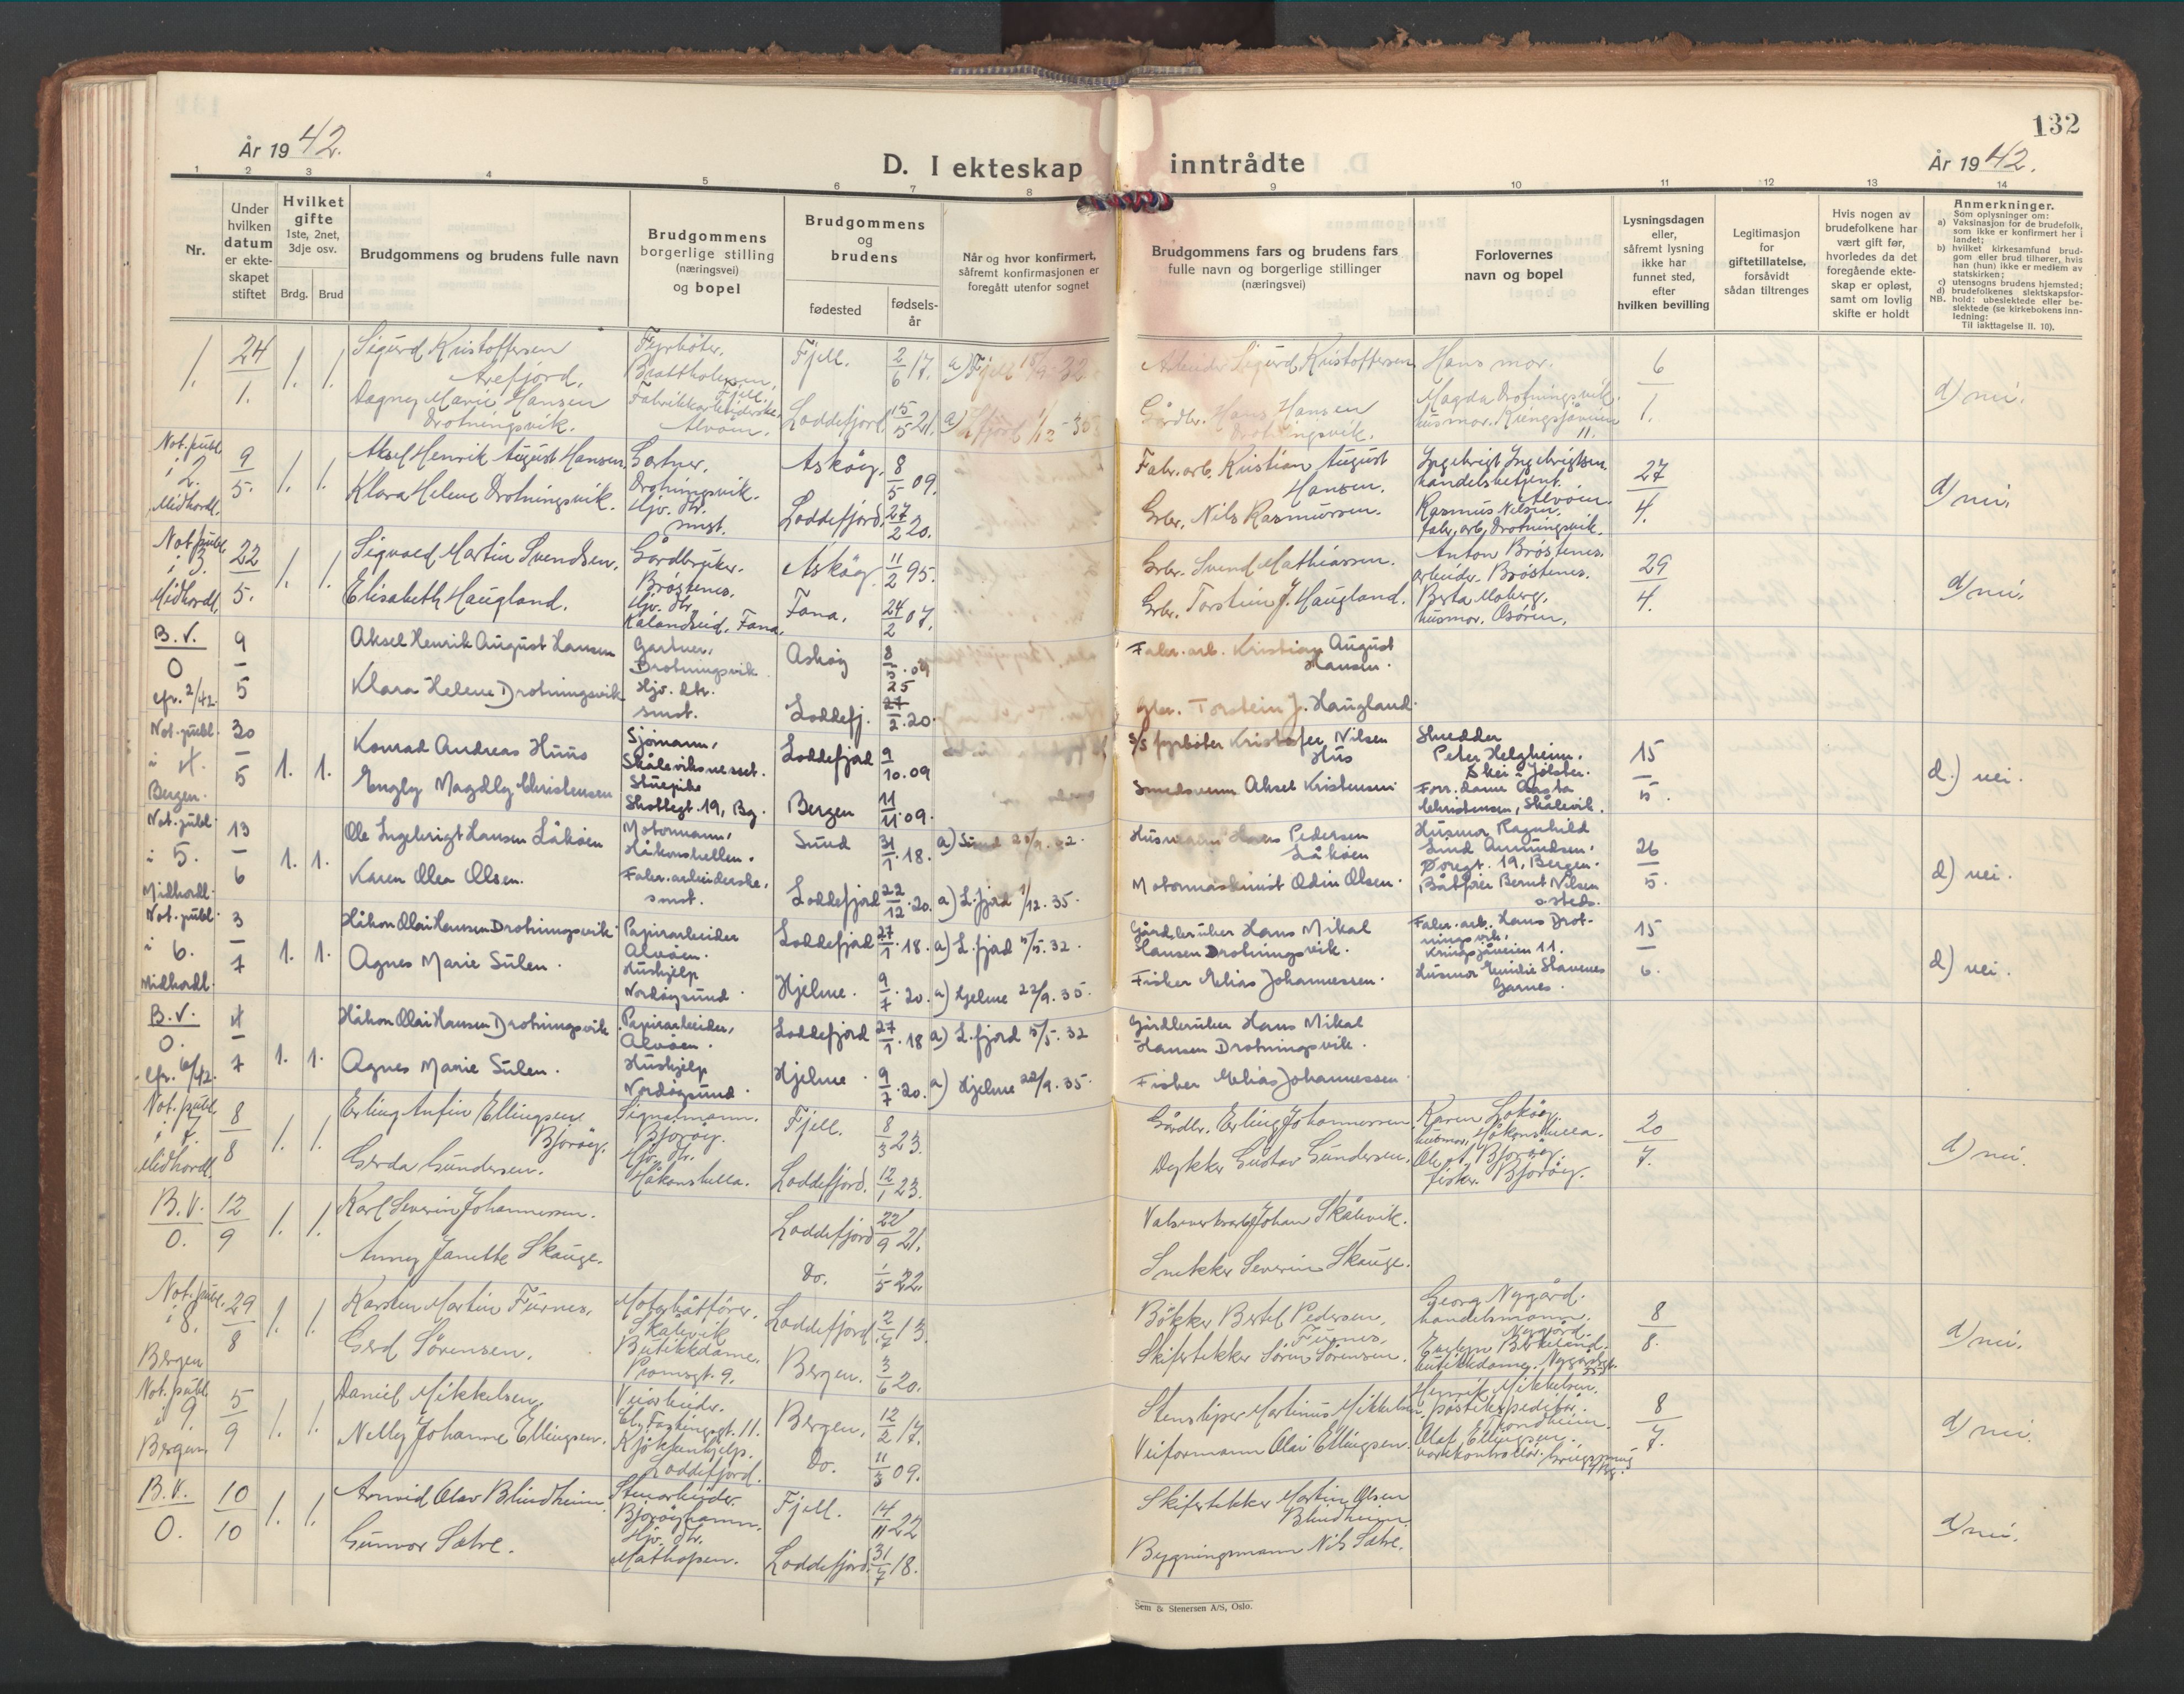 132
År 1942.
D. I ekteskap inntrådte
År 1942.
1 2 3 4 5 6 7 8 9 10 11 12 13 14
Nr.
Under hvilken datum er ekteskapet stiftet
Hvilket gifte 1ste, 2net, 3dje osv.
Brdg. Brud
Brudgommens og brudens fulle navn
Brudgommens borgerlige stilling (næringsvei) og bopel
Brudgommens og brudens
fødested
fødselsår
Når og hvor konfirmert, såfremt konfirmasjonen er foregått utenfor sognet
Brudgommens fars og brudens fars fulle navn og borgerlige stillinger (næringsvei)
Forlovernes navn og bopel
Lysningsdagen eller, såfremt lysning ikke har funnet sted, efter hvilken bevilling
Legitimasjon for giftetillatelse, forsåvidt sådan tiltrenges
Hvis nogen av brudefolkene har vært gift før, hvorledes da det foregående ekteskap er opløst, samt om lovlig skifte er holdt
Anmerkninger.
Som oplysninger om:
a) Vaksinasjon for de brudefolk, som ikke er konfirmert her i landet;
b) hvilket kirkesamfund brudgom eller brud tilhører, hvis han (hun) ikke er medlem av statskirken;
c) utensogns brudens hjemsted;
d) brudefolkenes slektskapsforhold: ubeslektede eller beslektede (se kirkebokens innledning:
NB.
Til iakttagelse II. 10).
1. 24/1. 1. 1. Sigurd Kristoffersen Fyrbøter, Fjell. 2/6 17. a) Fjell Arbeider Sigurd Kristoffersen Hans mor. 6/1.
Arefjord. Brattholmen, Fjell.
Dagny Marie Hansen Fabrikkarbeiderske, Loddefjord 15/5 21. a) Gårdbr. Hans Hansen Magda Drotningsvik, d) nei.
Drotningsvik. Alvøen. Drotningsvik. husmor. 11.
Not. publ. i 2. Midhordl. 9/5. 1. 1. Aksel Henrik August Hansen. Gartner. Askøy. 8/5 09. Fabr. arb. Kristian August Hansen. Ingebrigt Ingebrigtsen. handelsbetjent. Alvøen. 27/4. d) nei.
Klara Helene Drotningsvik. Drotningsvik. Hjv. dtr. smst. Loddefjord. 27/2 20. Grbr. Nils Rasmussen. Rasmus Nilsen, fabr. arb. Drotningsvik.
Not. publ. i 3. Midhordl. 22/5. 1. 1. Sigvald Martin Svendsen. Gårdbruker. Brøstenes. Askøy. 11/2 95. Grbr. Svend Mathiassen. Anton Brøstenes. arbeider. Brøstenes. 29/4. d) nei.
Elisabeth Haugland. Hjv. dtr. Kalandseid, Fana. Fana. 24/2 07. Grbr. Torstein J. Haugland. Berta Moberg, husmor. Osøren.
B. V. 0 cfr. 2/42 9/5 Aksel Henrik August Hansen Gartner, Drotningsvik Askøy 8/5 . 09 Fabr. arb. Kristian August Hansen.
Klara Helene Drotningsvik Hjv. dtr. smst. Loddefj. 25 27/2 . 20. Gbr. Torstein J. Haugland.
Not. publ. i 4. Bergen. 30/5 1. 1. Konrad Andreas Huus Sjømann, Skåleviksnesset. Loddefjord 9/10 . 09 S/S fyrbøter Kristofer Nilsen Hus Peter Helgheim, Skei i Jølster. 15/5. d.) nei.
Engly Magdly Christensen Stuepike Skottegt. 19, Bg. Bergen 11/11 . 09. Smedsvenn Aksel Kristensen Forr. dame Aasta Christensen, Skålevik.
Not. publ. i 5. Midhordl. 13/6 1. 1. Ole Ingebrigt Hansen Låkøen Motormann, Håkonshellen. Sund 31/1 . 18. a) Sund Hans Pedersen Låkøen Husmor Ragnhild Lind Amundsen, Øregt. 19, Bergen. 26/5. d) nei.
Karen Olea Olsen. Fabr. arbeiderske, smst. Loddefjord 22/12 . 20. a) L.fjord 1/12. 35. Motormaskinist Odin Olsen. Båtfører Bernt Nilsen s. steds.
Not. publ. i 6. Midhordl. 3/7 1. 1. Håkon Olai Hansen Drotningsvik. Papirarbeider Alvøen. Loddefjord 27/1 . 18. a) L.fjord 5/5. 32. Gårdbruker Hans Mikal Hansen Drotningsvik. Fabr. arb. Hans Drotningsvik, 11. 15/6. d) nei.
Agnes Marie Sulen. Hushjelp Nordøysund. Hjelme. 9/7 . 20. a) Hjelme 22/9. 35. Fisker Elias Johannessen. Husmor Emilie Garnes.
B. V. 0. cfr. 6/42. 4/7 1. 1. Håkon Olai Hansen Drotningsvik Papirarbeider, Alvøen. Loddefjord 27/1 . 18 a) L.fjord 5/5. 32 Gårdbruker Hans Mikal Hansen Drotningsvik.
Agnes Marie Sulen. Hushjelp Nordøysund. Hjelme. 9/7 . 20. a) Hjelme 22/9. 35. Fisker Elias Johannessen
Not. publ. i 7. Midhordl. 8/8 1. 1. Erling Anfin Ellingsen Bjorøy. Signalmann. Bjorøy. Fjell. 8/3 23. Gårdbr. Erling Johannessen. Karen Lokøy, husmor, Håkonshella. 20/7. d) nei.
Gerda Gundersen. Hjv. dtr. Håkonshella. Loddefjord. 12/1 23. Dykker Gustav Gundersen. Ole A. Bjorøy. fisker. Bjorøy.
B. V. 0. 12/9 1. 1. Karl Severin Johannessen. Loddefjord 22/9 21. Valseverksarb. Johan Skålevik.
Anny Janette Skauge. Do. 1/5 22. Snekker Severin Skauge.
Not. publ. i 8. Bergen 29/8 1. 1. Karsten Martin Furnes, Motorbåtfører. Skålevik Loddefjord 2/7 13. Bøkker Bertel Pedersen Furnes. Georg Nygård. handelsmann, Nygård. 8/8. d) nei.
Gerd Sørensen. Butikkdame. Promsgt. 9. Bergen. 3/6 20. Skifertekker Søren Sørensen. Birkeland. butikkdame.
Not. publ. i 9. Bergen 5/9 1. 1. Daniel Mikkelsen. Veiarbeider. 11. Bergen. 12/2 17. Stensliper Martinus Mikkelsen. Henrik Mikkelsen, postekspeditør. Trondheim. 8/7. d) nei.
Nelly Johanne Ellingsen. Kjøkkenhjelp. Loddefjord. Do. 11/3 09. Veiformann Olai Ellingsen. Olaf Ellingsen. Bg.
B. V. 0. 10/10 1. 1. Arnvid Olav Blindheim. Stenarbeider. Bjorøyhamn. Fjell. 14/11 22 Skifertekker Martin Olsen Blindheim. d) nei.
Gunvor Sætre. Hjv. dtr. Mathopen. Loddefjord. 31/7 18. Bygningsmann Nils Sætre.
Sem & Stenersen A/S, Oslo.